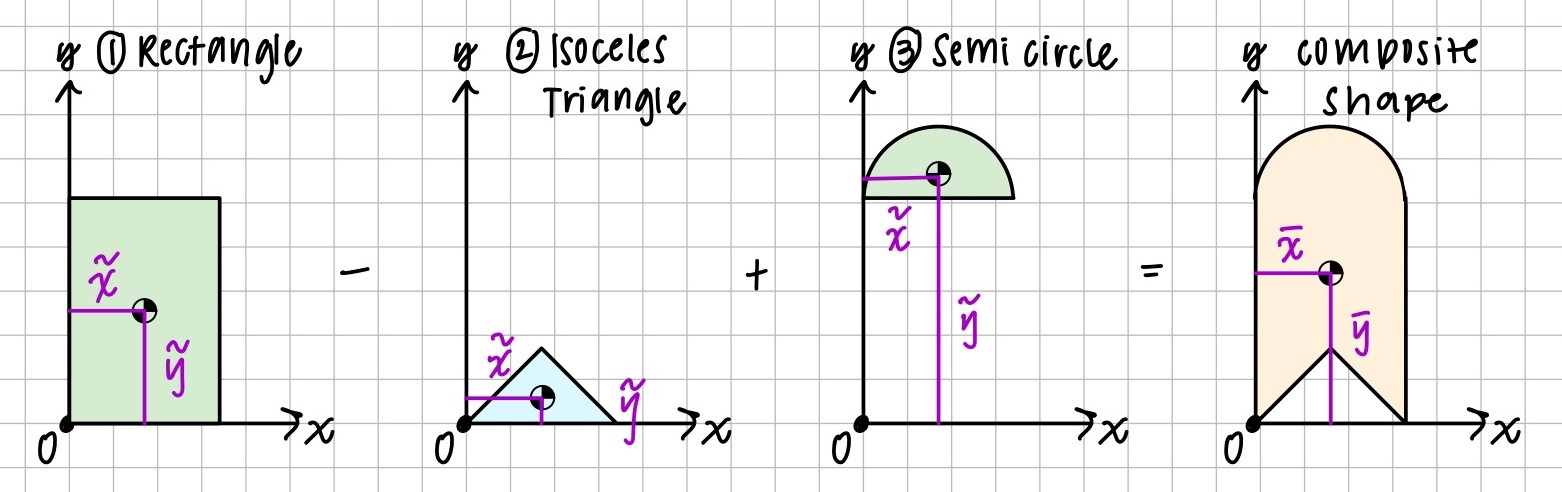 y ① Rectangle
x̃
ỹ
O
x
−
y ② Isoceles
Triangle
x̃
ỹ
O
x
+
y ③ Semi circle
x̃
ỹ
O
x
=
y composite
shape
x̄
ȳ
O
x